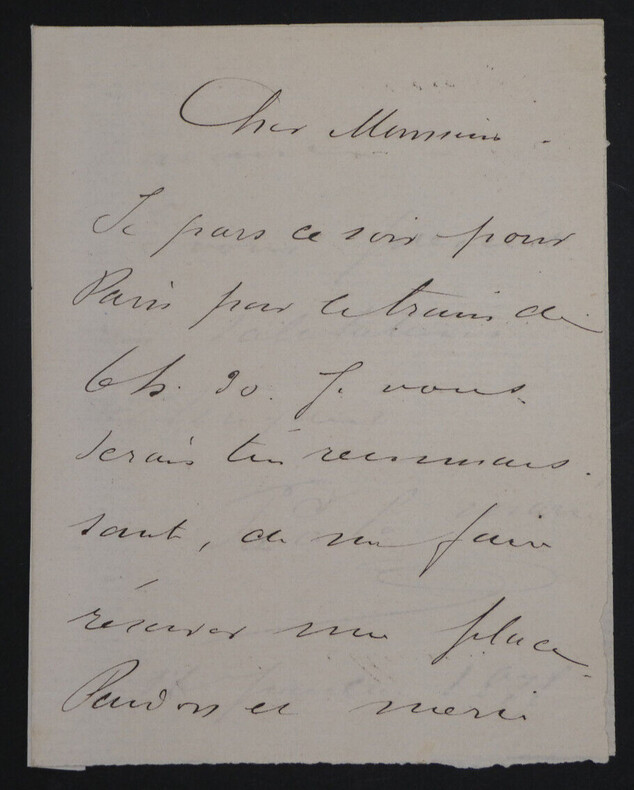 Cher Monsieur.
Je pars ce soir pour
Paris par le train de
6h. 30. Je vous
serais très reconnais-
sant, de me faire
réserver une place.
Pardon et merci